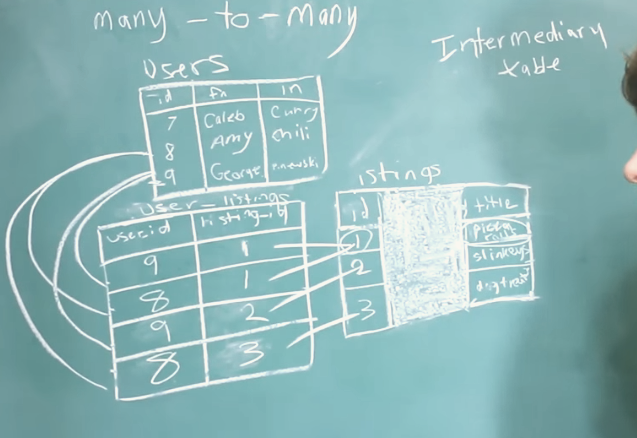 many-to-many
Intermediary
table
users
id fn ln
7 Caleb Curry
8 Amy Chili
9 George
user-listings
userid listing-id
9 1
8 1
9 2
8 3
istings
id title
1
2 slinkeys
3